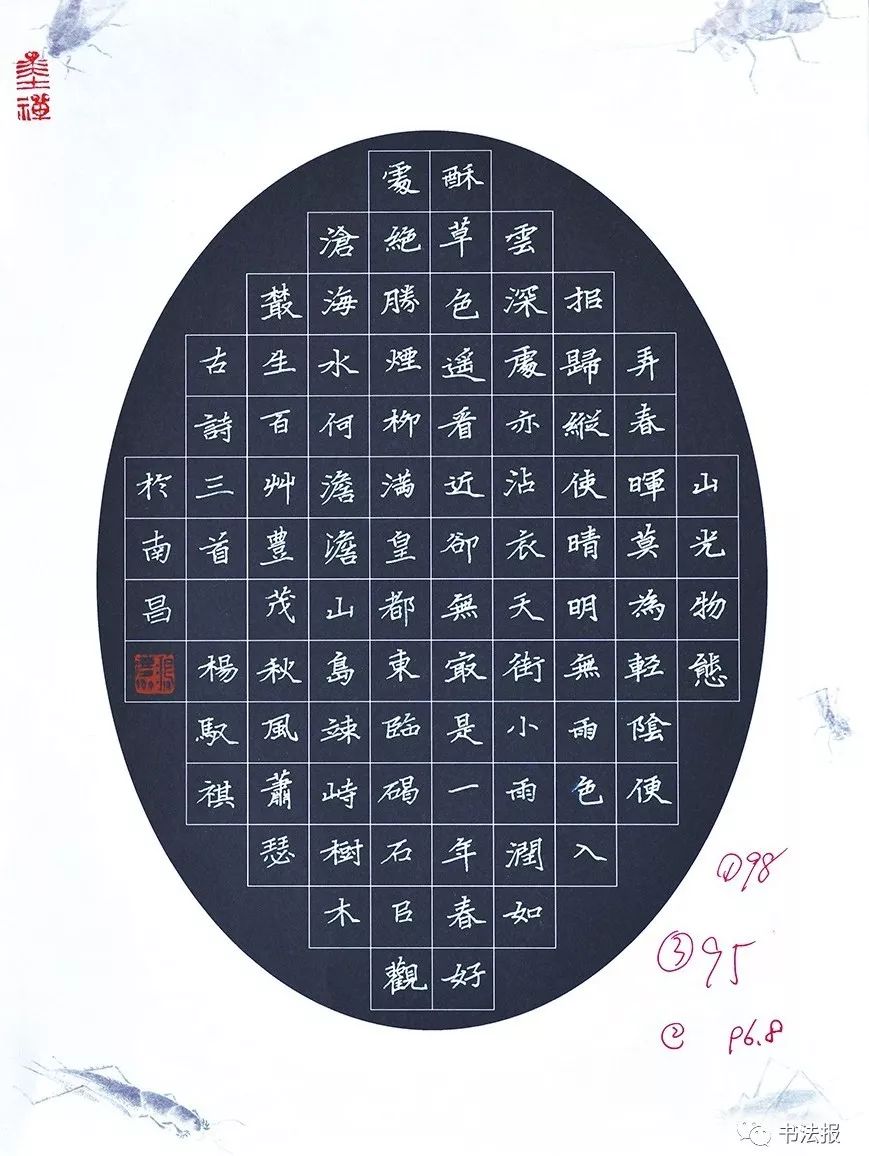 墨禪
山光物態
弄春暉莫為輕陰便
拒歸縱使晴明無雨色入
雲深處亦沾衣天街小雨潤如
酥草色遙看近卻無冣是一年春好
處絕勝煙柳滿皇都東臨碣石㠯觀
滄海水何澹澹山島竦峙樹木
叢生百艸豐茂秋風蕭瑟
古詩三首 楊馭祺
於南昌
①98
③95
② 96.8
书法报